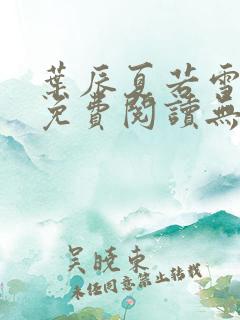 葉辰夏若雪
免費閱讀無
吴晓东
未经同意禁止转载